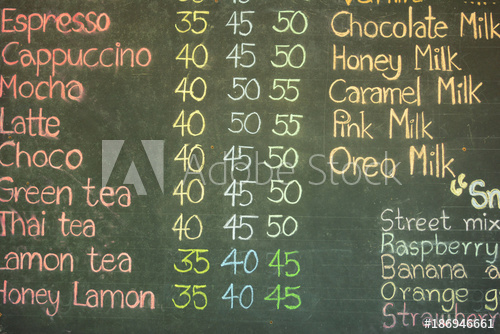 Espresso 35 45 50
Cappuccino 40 45 50
Mocha 40 50 55
Latte 40 50 55
Choco 40 45 50
Green tea 40 45 50
Thai tea 40 45 50
Lamon tea 35 40 45
Honey Lamon 35 40 45
Chocolate Milk
Honey Milk
Caramel Milk
Pink Milk
Oreo Milk
"Sm
Street mix
Raspberry
Banana a
Orange g
Strawberr
Adobe Stock
#186946661